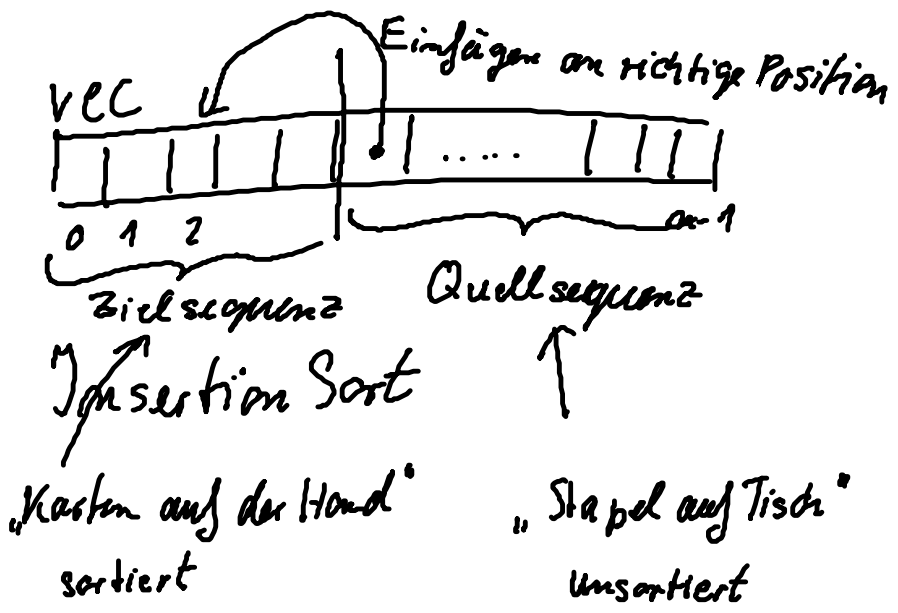 Einfügen an richtige Position
vec
.....
0 1 2 n-1
Zielsequenz Quellsequenz
Insertion Sort
„Karten auf der Hand“ „Stapel auf Tisch“
sortiert unsortiert